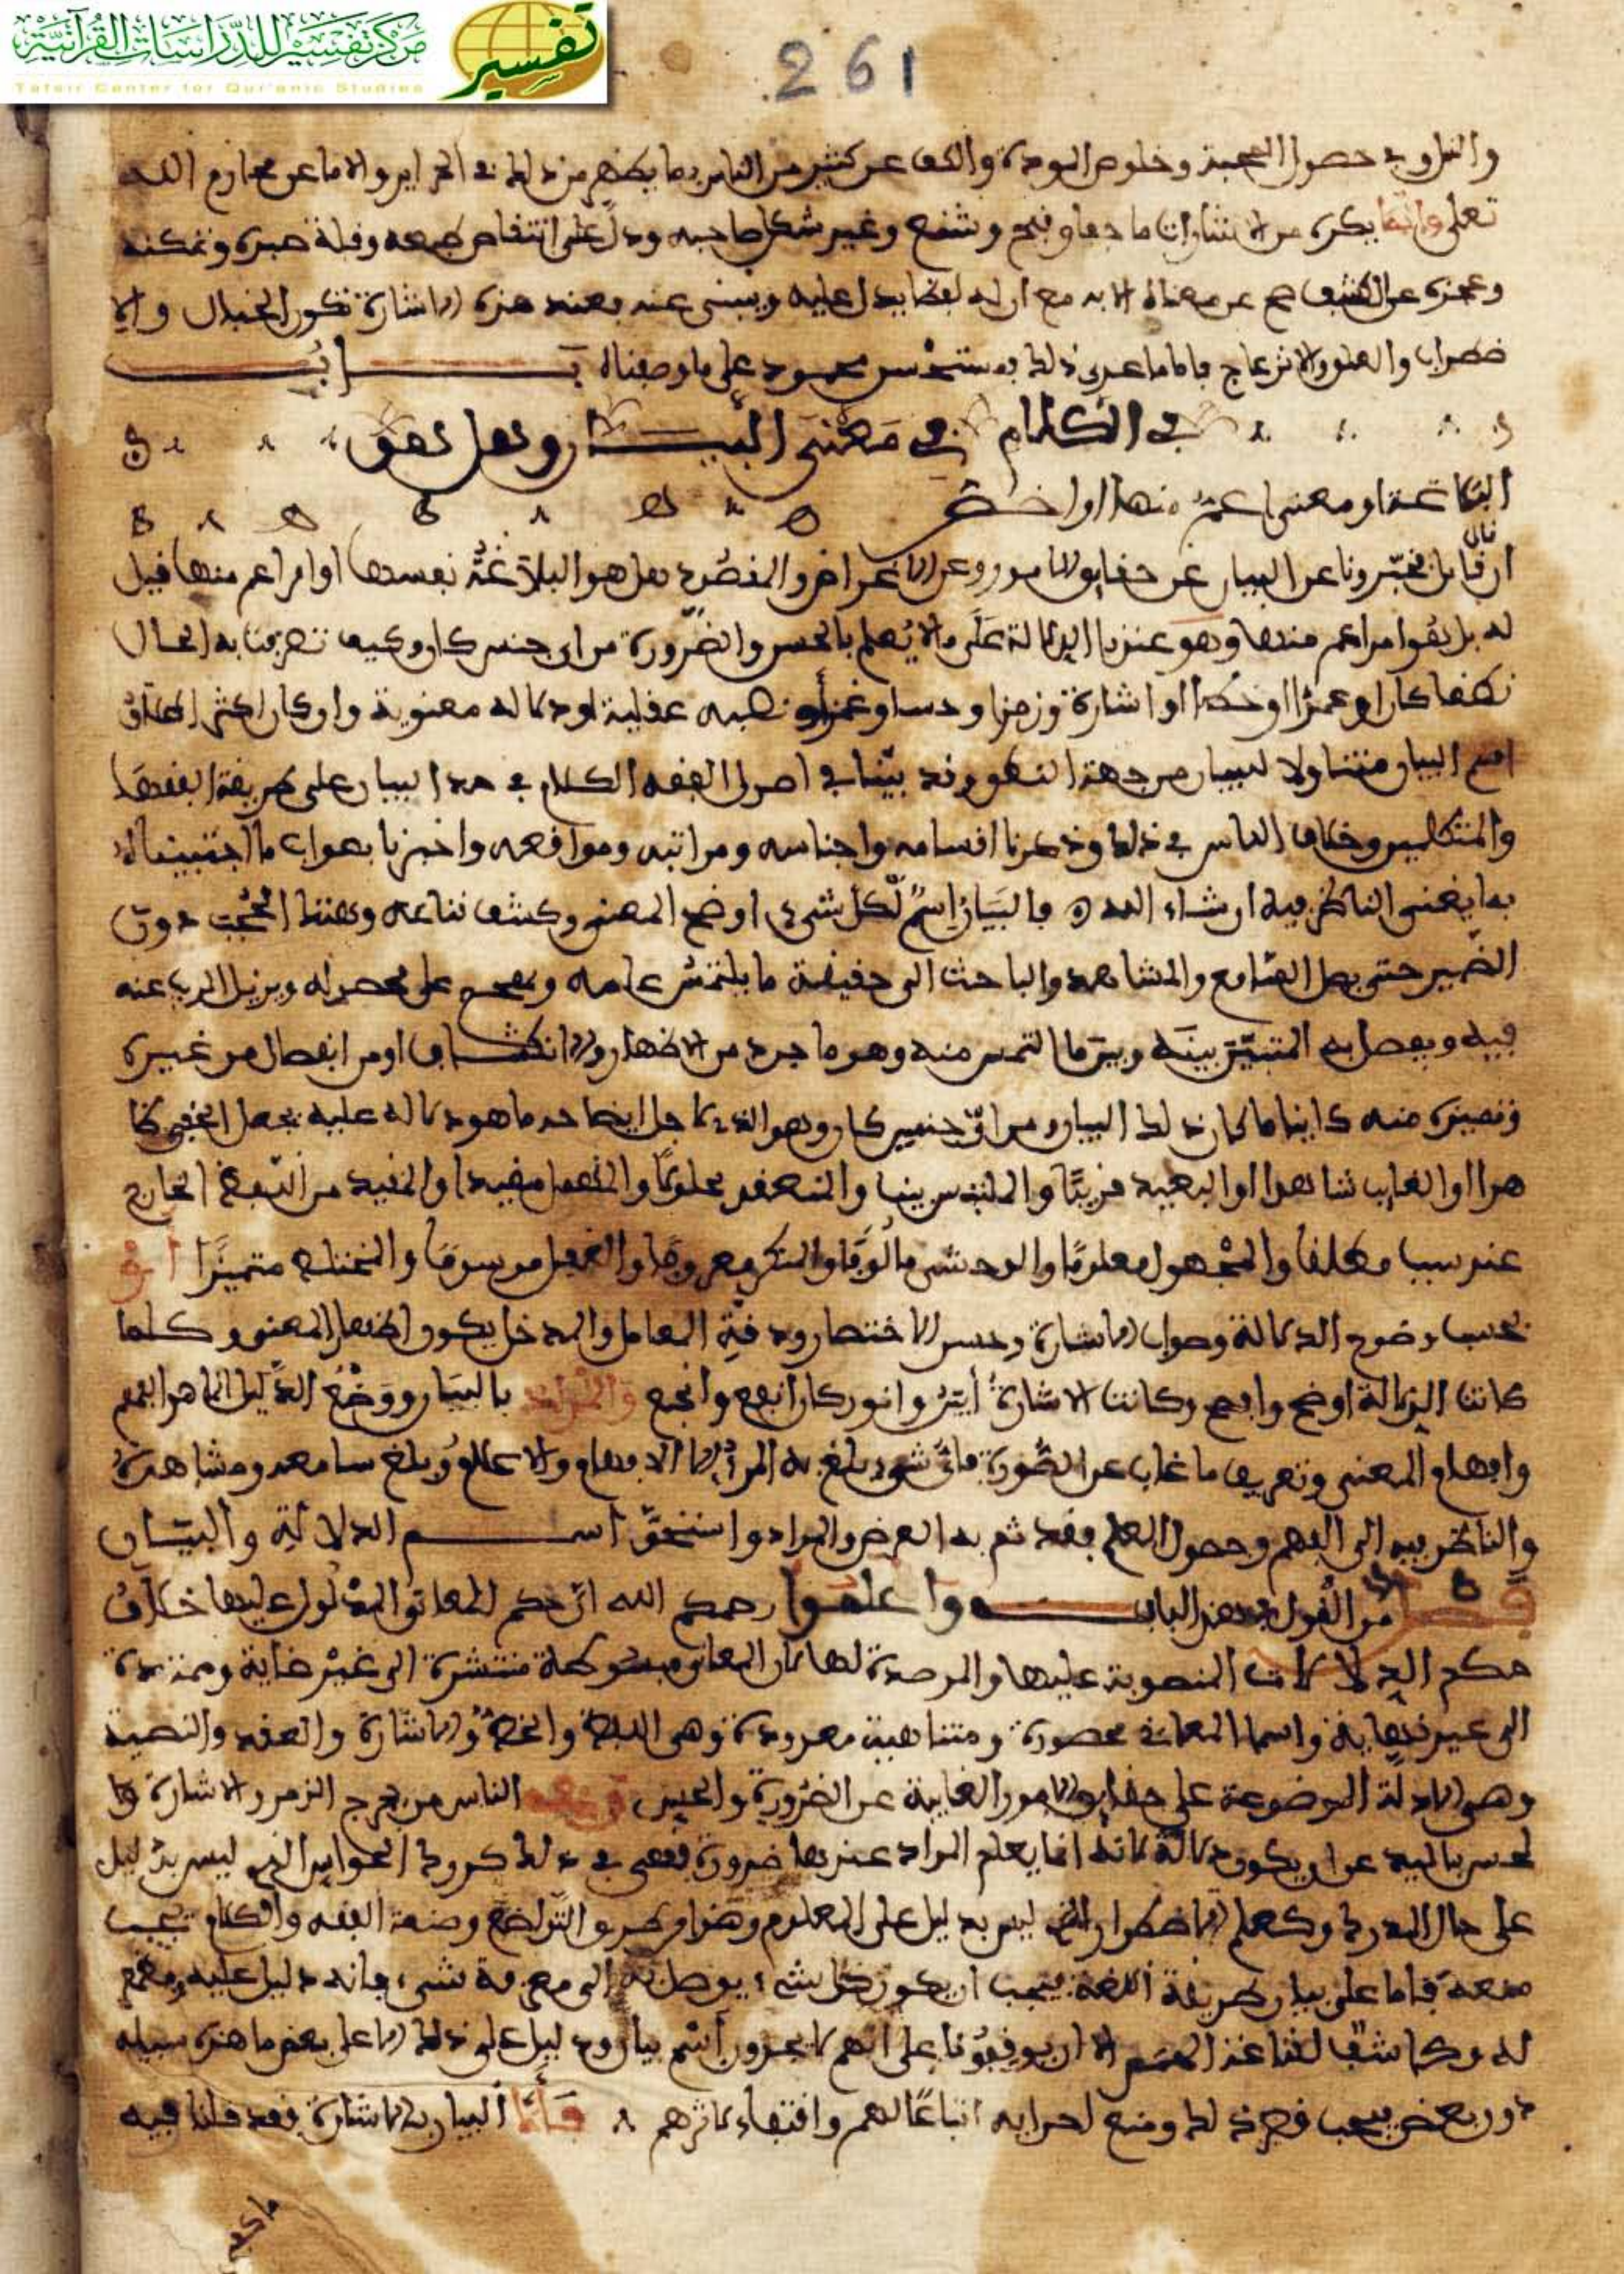 مركز تفسير للدراسات القرآنية
Tafsir Center for Qur'anic Studies
تفسير
261
حصول المحبة وخلوص المودة والكف عن كثير من الناس بما يظهر من ذلك في الحرائر والاماء عن محارم الله
تعلى وانما يكره من الاشارات ما جفا وقبح وشنع وغير شكل صاحبه ودل على انتقاص طبعه وقلة صبره وتمكنه
وعجزه عن الكشف عن معناه الا به مع ان له لفظا يدل عليه وينبي عنه فعند هذه الاشارة تكون الخبال والا
ضطراب والانزعاج فاما ما عدى ذلك فمستحسن محمود على ما وصفناه بـــــــاب
في الكلام في معنى البيان وهل هو
البلاغة او معنى اعم منها او اخص
ان قال قائل خبرونا عن البيان عن حقايق الامور وعن الاغراض والمقصود هل هو البلاغة نفسها او امر اعم منها قيل
له بل هو امر اعم منها وهو عندنا الدلالة على ما لا يعلم بالحس والضرورة من اي جنس كان وكيف تصرفت به الحال
لفظا كان او او خطا او اشارة ورمزا او نصبه عقلية او دلالة معنوية وان كان اكثر اطلاق
اسم البيان متناولا للبيان من جهة النطق وقد بينا في اصول الفقه الكلام في حد البيان على طريقة الفقها
والمتكلمين وخلاف الناس في ذلك وذكرنا اقسامه واجناسه ومراتبه ومواقعه واخبرنا بصواب ما
به ما يغني الناظر فيه ان شاء الله فالبيان اسم لكل شيء اوضح المعنى وكشف قناعه وهتك الحجب دون
الضمير حتى يصل السامع والمشاهد والباحث الى حقيقة ما يلتمس علمه ويهجم على محصوله ويزيل الريب عنه
فيه ويفصل به المتبين بينه وبين ما التمس منه وهو ماخوذ من الاظهار والانكشاف او من انفصال من غيره
وتميزه منه كاينا ما كان ذلك البيان ومن اي جنس كان وهو الذي لاجل ايضاحه ما هو دلالة عليه يجعل الخفي ظا
هرا او الغايب شاهدا او البعيد قريبا والملتبس بينا والمنعقد محلولا والمهمل مقيدا والمقيد من
مطلقا والمجهول معلوما والوحشي مالوفا والمنكر معروفا والغفل موسوما والمختلط متميزا
بحسب وضوح الدلالة وصواب الاشارة وحسن الاختصار ودقة المدخل يكون اظهار المعنى وكلما
كانت الدلالة اوضح وافصح وكانت الاشارة ابين وانور كان انفع وانجع والمراد بالبيان ووضع الدليل انما هو الفهم
وافهام المعنى وتعريف ما غاب عن الضرورة فاي شيء بلغ به المرء الافهام والاعلام وبلغ سامعه ومشاهده
والناظر فيه الى الفهم وحصول العلم فقد تم به الغرض والمراد واستحق اســـم الدلالة والبيان
فصل من القول في هذا الباب واعلموا رحمكم الله ان حكم المعاني المدلول عليها خلاف
حكم الدلالات المنصوبة عليها والمرصدة لها لان المعاني مبسوطة منتشرة الى غير غاية وممتدة
الى غير نهاية واسما المعاني محصورة ومتناهية معدودة وهي اللفظ والخط والاشارة والعقد والنصبة
وهي الادلة الموضوعة على حقايق الامور الغايبة عن الضرورة والحس الناس من يخرج الرمز والاشارة
عن ان يكون دلالة لانه انما يعلم المراد عندها ضرورة فهي في ذلك كدرك الحواس الذي ليس بدليل
على حال المدرك وكعلم الاضطرار الذي ليس بدليل على المعلوم وهذا والكلام يجب
فاما على بيان طريقة اللغة فيجب ان يكون كل شيء يوصل به الى معرفة شيء فانه دليل عليه ومفهم
له وكاشف لقناعه الا ان يوقفونا على انهم لا يجرون اسم بيان ودليل على ذلك الا على بعض ما هذه سبيله
دون بعض فيجب قصر ذلك ومنع اجرايه اتباعا لهم واقتفاء لاثرهم فاما البيان بالاشارة فقد قلنا فيه